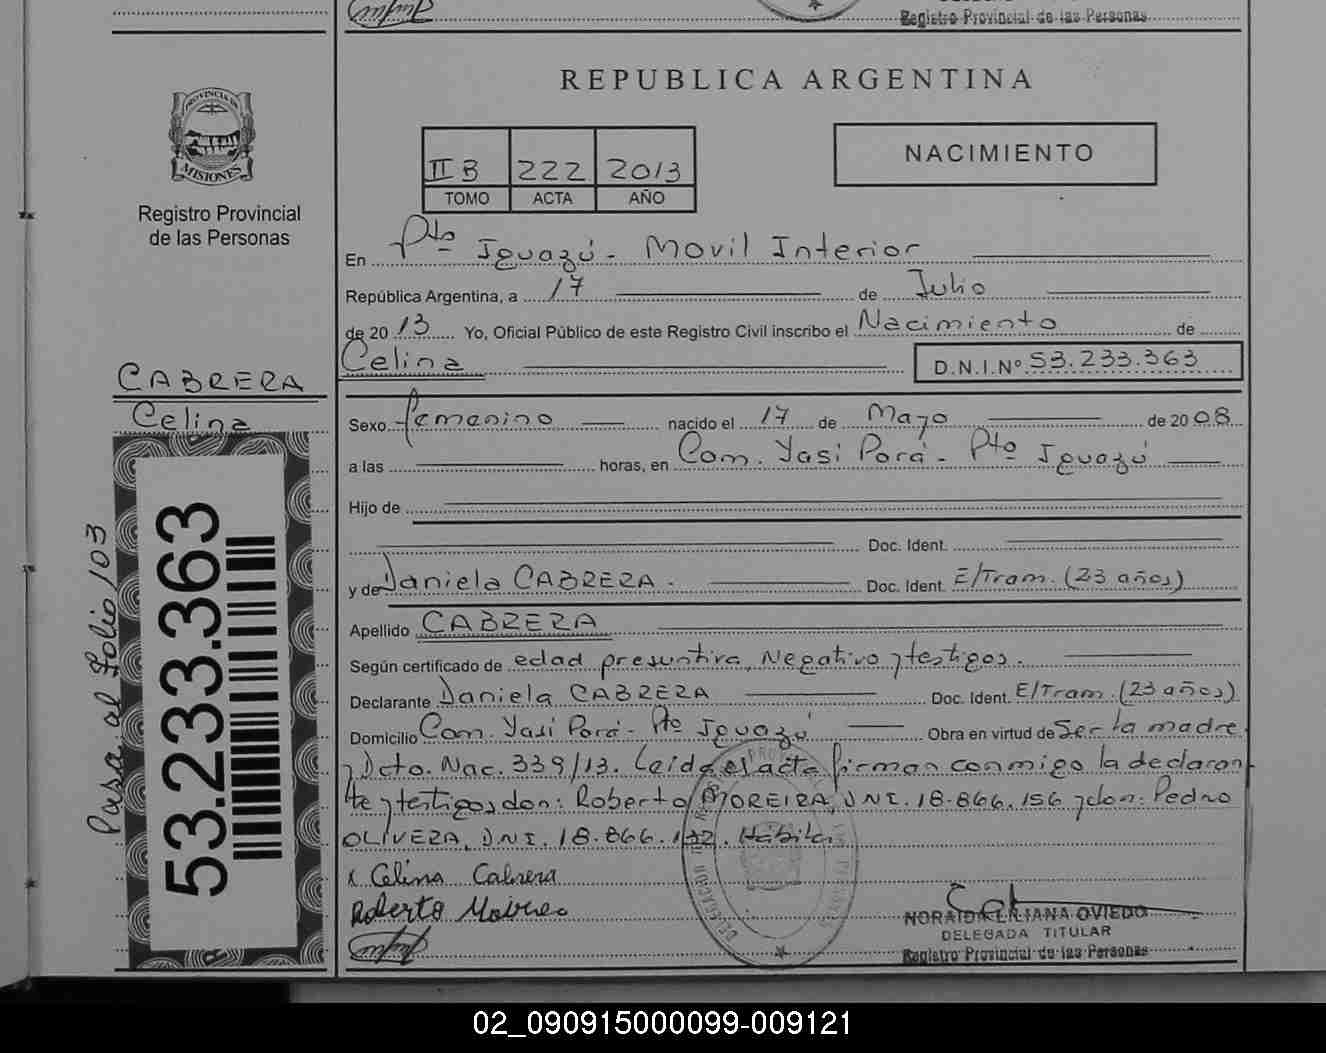 Registro Provincial de las Personas
REPUBLICA ARGENTINA
PROVINCIA DE
MISIONES
Registro Provincial
de las Personas
II B 222 2013
TOMO ACTA AÑO
NACIMIENTO
En Pto Iguazú - Movil Interior
República Argentina, a 17 de Julio
de 2013 Yo, Oficial Público de este Registro Civil inscribo el Nacimiento de
Celina D.N.I.Nº 53.233.363
CABRERA
Celina
Sexo femenino nacido el 17 de Mayo de 2008
a las horas, en Com. Yasi Porá - Pto Iguazú
Hijo de
Doc. Ident.
y de Daniela CABRERA. Doc. Ident. E/Tram. (23 años)
Apellido CABRERA
Según certificado de edad presuntiva, Negativo y testigos.
Declarante Daniela CABRERA Doc. Ident. E/Tram. (23 años)
Domicilio Com. Yasi Porá - Pto Iguazú Obra en virtud de Ser la madre
y Dcto. Nac. 339/13. Leida el acta firman conmigo la declaran
te y testigos don: Roberto MOREIRA, DNI. 18.866.156 y don: Pedro
OLIVERA, DNI. 18.866.132. Hábiles
x Celina Cabrera
Roberto Moireo
NORAIDA LILIANA OVIEDO
DELEGADA TITULAR
Registro Provincial de las Personas
Pasa al Folio 103
53.233.363
02_090915000099-009121